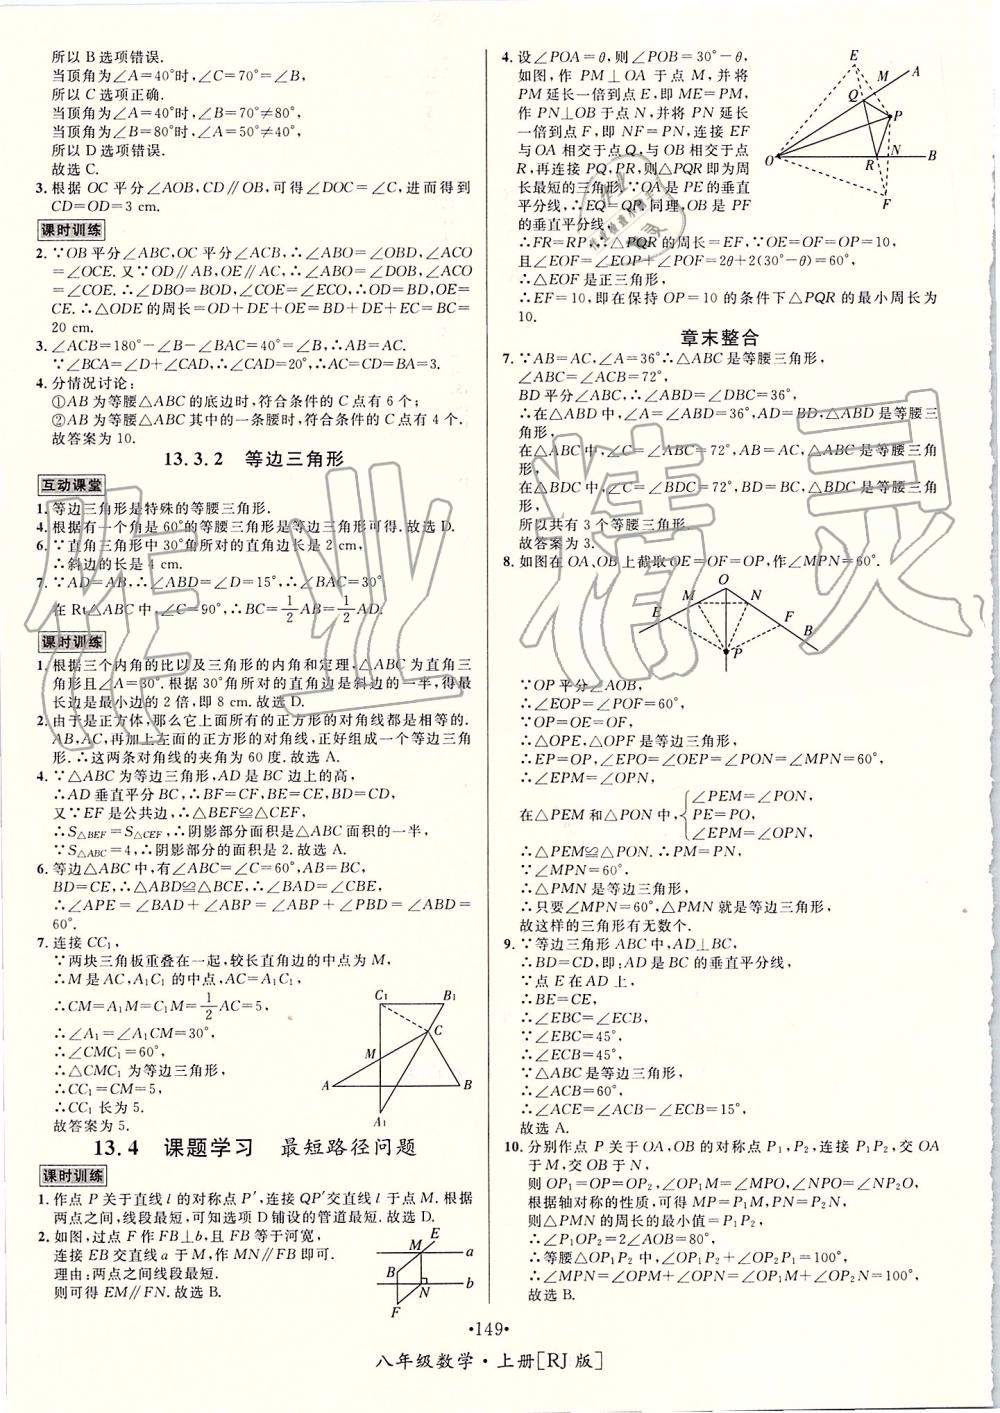 所以 B 选项错误.
当顶角为∠A=40°时,∠C=70°=∠B,
所以 C 选项正确.
当顶角为∠A=40°时,∠B=70°≠80°,
当顶角为∠B=80°时,∠A=50°≠40°,
所以 D 选项错误.
故选 C.
3. 根据 OC 平分∠AOB,CD∥OB,可得∠DOC=∠C,进而得到
CD=OD=3 cm.
课时训练
2. ∵OB 平分∠ABC,OC 平分∠ACB,∴∠ABO=∠OBD,∠ACO
=∠OCE. 又∵OD∥AB,OE∥AC,∴∠ABO=∠DOB,∠ACO
=∠COE. ∴∠DBO=BOD,∠COE=∠ECO,∴OD=BD,OE=
CE. ∴△ODE 的周长=OD+DE+OE=BD+DE+EC=BC=
20 cm.
3. ∠ACB=180°-∠B-∠BAC=40°=∠B,∴AB=AC.
∵∠BCA=∠D+∠CAD,∴∠CAD=20°,∴AC=CD=BA=3.
4. 分情况讨论:
①AB 为等腰△ABC 的底边时,符合条件的 C 点有 6 个;
②AB 为等腰△ABC 其中的一条腰时,符合条件的 C 点有 4 个.
故答案为 10.
13.3.2 等边三角形
互动课堂
1. 等边三角形是特殊的等腰三角形.
4. 根据有一个角是 60°的等腰三角形是等边三角形可得. 故选 D.
6. ∵直角三角形中 30°角所对的直角边长是 2 cm,
∴斜边的长是 4 cm.
7. ∵AD=AB,∴∠ABD=∠D=15°,∴∠BAC=30°,
在 Rt△ABC 中,∠C=90°,∴BC=1/2AB=1/2AD.
课时训练
1. 根据三个内角的比以及三角形的内角和定理,△ABC 为直角三
角形且∠A=30°. 根据 30°角所对的直角边是斜边的一半,得最
长边是最小边的 2 倍,即 8 cm. 故选 D.
2. 由于是正方体,那么它上面所有的正方形的对角线都是相等的.
AB,AC,再加上左面的正方形的对角线,正好组成一个等边三角
形. ∴这两条对角线的夹角为 60度. 故选 A.
4. ∵△ABC 为等边三角形,AD 是 BC 边上的高,
∴AD 垂直平分 BC,∴BF=CF,BE=CE,BD=CD,
又∵EF 是公共边,∴△BEF≌△CEF,
∴S△BEF=S△CEF,∴阴影部分面积是△ABC 面积的一半,
∵S△ABC=4,∴阴影部分的面积是 2. 故选 A.
6. 等边△ABC 中,有∠ABC=∠C=60°,AB=BC,
BD=CE,∴△ABD≌△BCE,∴∠BAD=∠CBE,
∴∠APE=∠BAD+∠ABP=∠ABP+∠PBD=∠ABD=
60°.
7. 连接 CC₁,
∵两块三角板重叠在一起,较长直角边的中点为 M,
∴M 是 AC,A₁C₁ 的中点,AC=A₁C₁,
∴CM=A₁M=C₁M=1/2AC=5,
∴∠A₁=∠A₁CM=30°,
∴∠CMC₁=60°,
∴△CMC₁ 为等边三角形,
∴CC₁=CM=5,
∴CC₁ 长为 5.
故答案为 5.
C₁ B₁ C M A B A₁
13.4 课题学习 最短路径问题
课时训练
1. 作点 P 关于直线 l 的对称点 P′,连接 QP′交直线 l 于点 M. 根据
两点之间,线段最短,可知选项 D 铺设的管道最短. 故选 D.
2. 如图,过点 F 作 FB⊥b,且 FB 等于河宽,
连接 EB 交直线 a 于 M,作 MN∥FB 即可.
理由:两点之间线段最短.
则可得 EM∥FN. 故选 A.
E M a B N b F
4. 设∠POA=θ,则∠POB=30°-θ,
如图,作 PM⊥OA 于点 M,并将
PM 延长一倍到点 E,即 ME=PM,
作 PN⊥OB 于点 N,并将 PN 延长
一倍到点 F,即 NF=PN,连接 EF
与 OA 相交于点 Q,与 OB 相交于点
R,再连接 PQ,PR,则△PQR 即为周
长最短的三角形. ∵OA 是 PE 的垂直
平分线,∴EQ=QP. 同理,OB 是 PF
的垂直平分线,
∴FR=RP,∴△PQR 的周长=EF,∵OE=OF=OP=10,
且∠EOF=∠EOP+∠POF=2θ+2(30°-θ)=60°,
∴△EOF 是正三角形,
∴EF=10,即在保持 OP=10 的条件下△PQR 的最小周长为
10.
E M A Q P O R N B F
章末整合
7. ∵AB=AC,∠A=36°∴△ABC 是等腰三角形,
∠ABC=∠ACB=72°,
BD 平分∠ABC,∴∠ABD=∠DBC=36°,
∴在△ABD 中,∠A=∠ABD=36°,AD=BD,△ABD 是等腰三
角形,
在△ABC 中,∠C=∠ABC=72°,AB=AC,△ABC 是等腰三角形,
在△BDC 中,∠C=∠BDC=72°,BD=BC,△BDC 是等腰三角形,
所以共有 3 个等腰三角形.
故答案为 3.
8. 如图在 OA,OB 上截取 OE=OF=OP,作∠MPN=60°.
O M N E F B P
∵OP 平分∠AOB,
∴∠EOP=∠POF=60°,
∵OP=OE=OF,
∴△OPE,△OPF 是等边三角形,
∴EP=OP,∠EPO=∠OEP=∠PON=∠MPN=60°,
∴∠EPM=∠OPN,
在△PEM 和△PON 中,
∠PEM=∠PON,
PE=PO,
∠EPM=∠OPN,
∴△PEM≌△PON. ∴PM=PN,
∵∠MPN=60°,
∴△PMN 是等边三角形,
∴只要∠MPN=60°,△PMN 就是等边三角形,
故这样的三角形有无数个.
9. ∵等边三角形 ABC 中,AD⊥BC,
∴BD=CD,即:AD 是 BC 的垂直平分线,
∵点 E 在 AD 上,
∴BE=CE,
∴∠EBC=∠ECB,
∵∠EBC=45°,
∴∠ECB=45°,
∵△ABC 是等边三角形,
∴∠ACB=60°,
∴∠ACE=∠ACB-∠ECB=15°,
故选 A.
10. 分别作点 P 关于 OA,OB 的对称点 P₁,P₂,连接 P₁P₂,交 OA
于 M,交 OB 于 N,
则 OP₁=OP=OP₂,∠OP₁M=∠MPO,∠NPO=∠NP₂O,
根据轴对称的性质,可得 MP=P₁M,PN=P₂N,
则△PMN 的周长的最小值=P₁P₂,
∴∠P₁OP₂=2∠AOB=80°,
∴等腰△OP₁P₂ 中,∠OP₁P₂+∠OP₂P₁=100°,
∴∠MPN=∠OPM+∠OPN=∠OP₁M+∠OP₂N=100°,
故选 B.
·149·
八年级数学·上册[RJ 版]
作业精灵